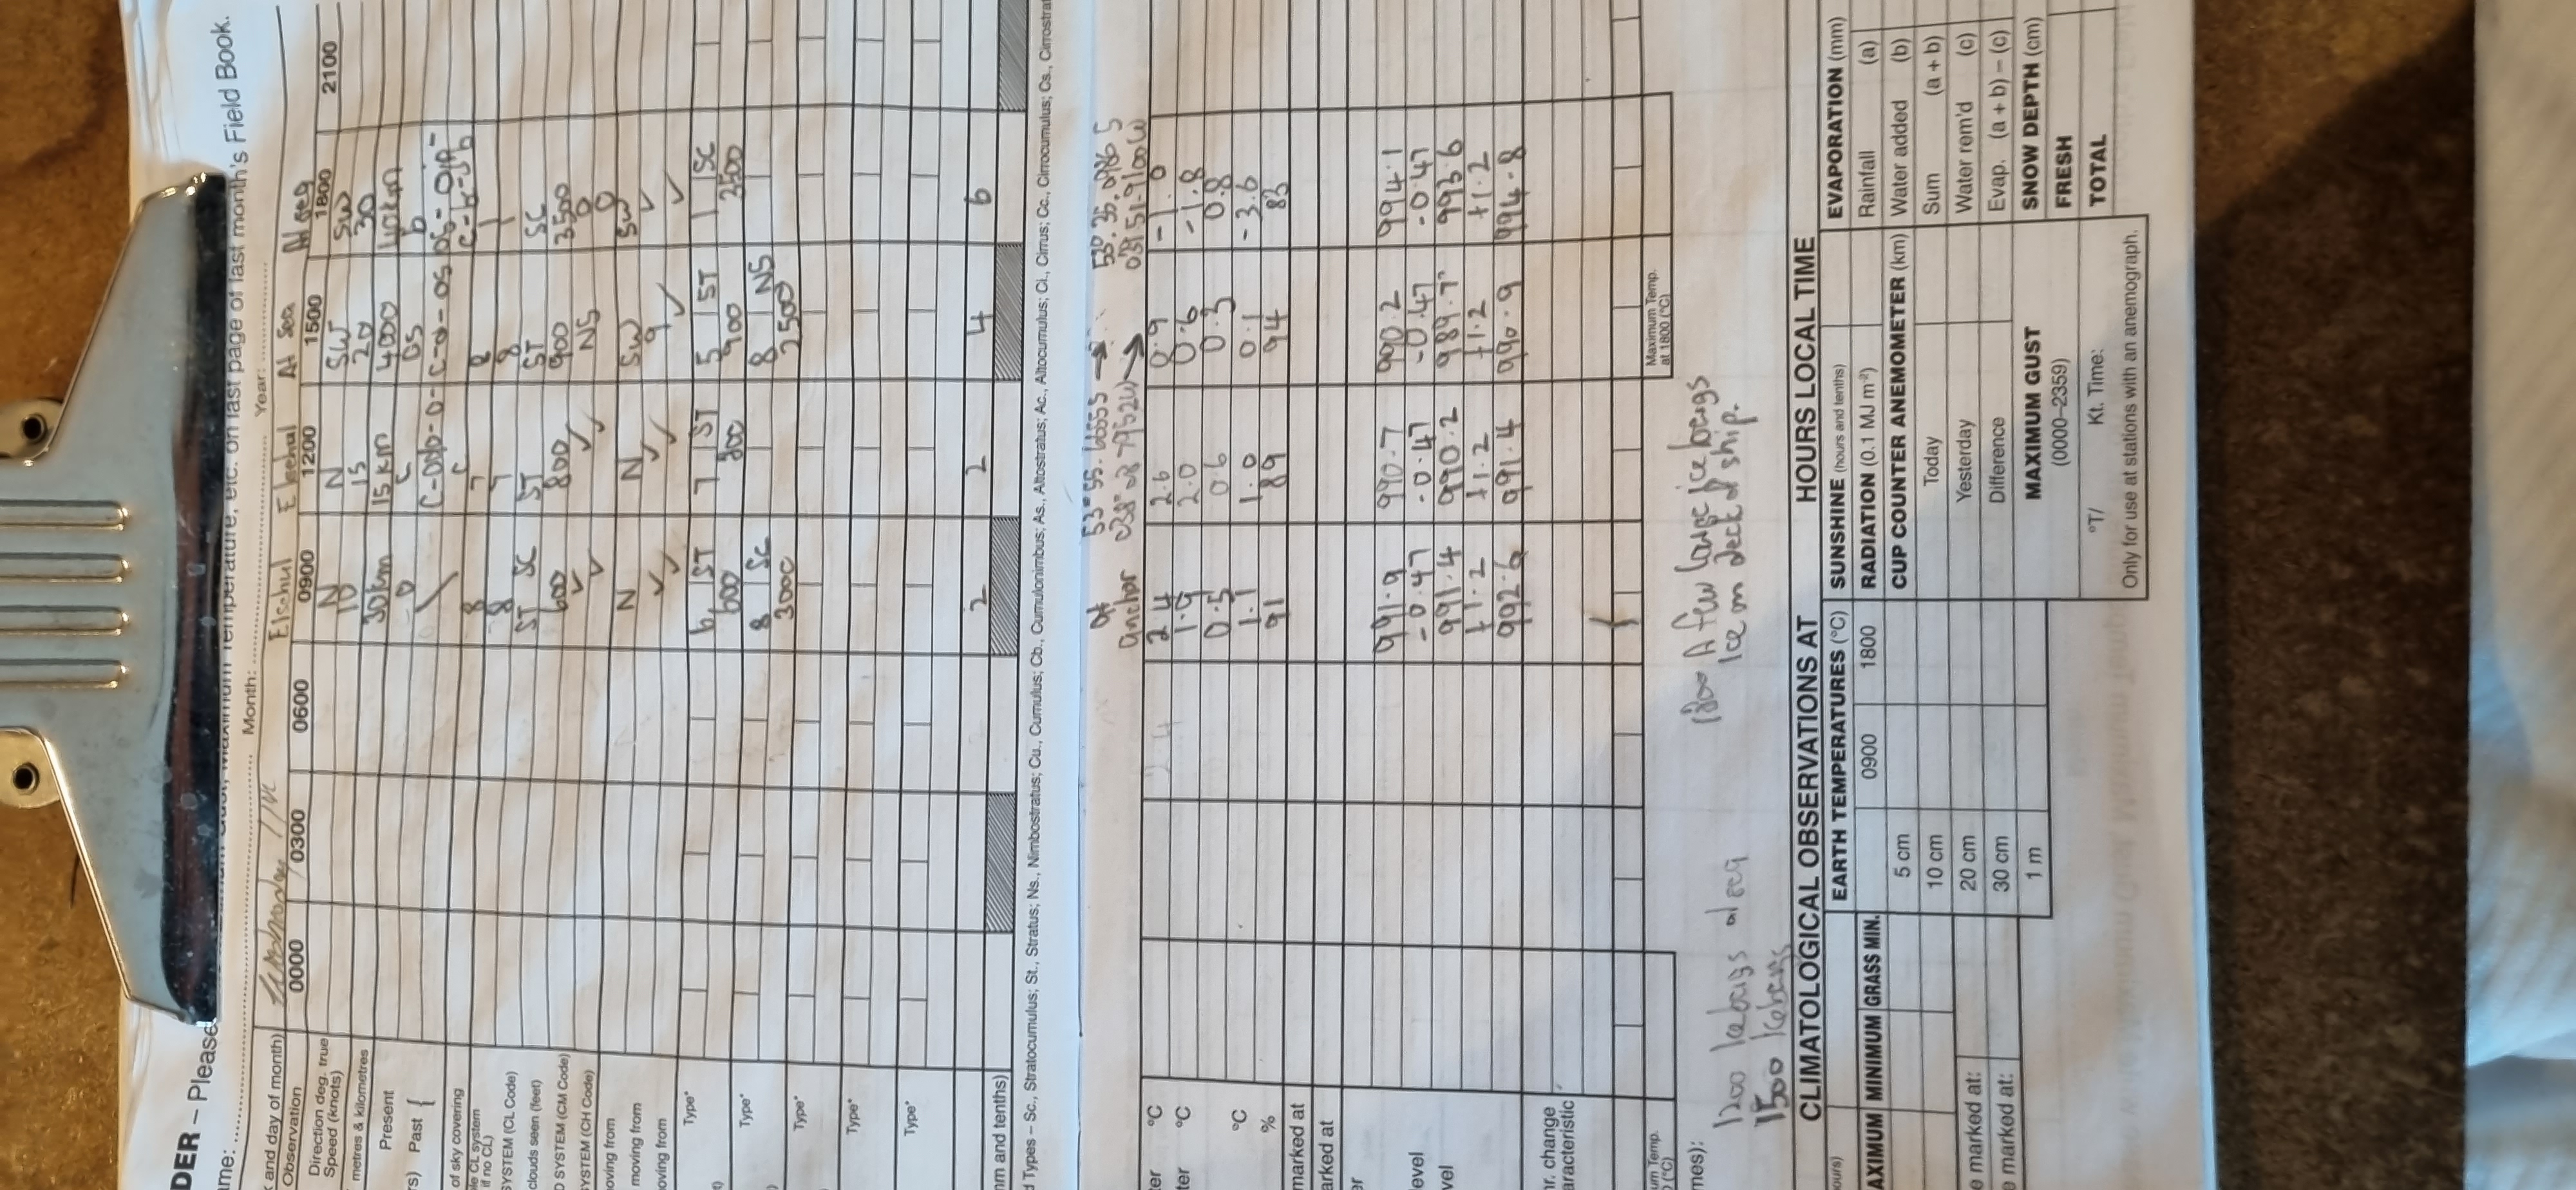 DER – Please
last month's Field Book.
Temperature, etc. on last page of last month's Field Book.
Month: Year:
and day of month)
Wednesday
Elsehul Elsehul At Sea At Sea
Observation 0000 0300 0600 0900 1200 1500 1800 2100
Direction deg. true N N SW SW
Speed (knots) 10 15 20 30
metres & kilometres 30km 15km 4000 40km
Present o c os b
Past {
of sky covering 8 7 8 1
le CL system 8 7 8 1
if no CL)
SYSTEM (CL Code) ST SC ST ST SC
clouds seen (feet) 600 800 900 3500
D SYSTEM (CM Code) ✓ ✓ NS 0
SYSTEM (CH Code) ✓ ✓ 0
oving from N N SW SW
moving from ✓ ✓ 9 ✓
oving from ✓ ✓ ✓ ✓
Type* 6 ST 7 ST 5 ST 1 SC
600 800 900 3500
Type* 8 SC 8 NS
3000 2500
Type*
Type*
Type*
nm and tenths) 2 2 4 6
d Types – Sc., Stratocumulus; St., Stratus; Ns., Nimbostratus; Cu., Cumulus; Cb., Cumulonimbus; As., Altostratus; Ac., Altocumulus; Ci., Cirrus; Cc., Cirrocumulus; Cs., Cirrostrat
at
anchor
ter °C 2.4 2.6 0.9 -1.0
ter °C 1.9 2.0 0.6 -1.8
0.5 0.6 0.3 0.8
°C 1.1 1.0 0.1 -3.6
% 91 89 94 83
marked at
arked at
er 991.9 990.7 990.2 994.1
-0.47 -0.47 -0.47 -0.47
level 991.4 990.2 989.7 993.6
+1.2 +1.2 +1.2 +1.2
vel 992.6 991.4 990.9 994.8
hr. change
aracteristic
um Temp.
(°C)
Maximum Temp.
at 1800 (°C)
mes):
1200 Icebergs at sea
1500 Icebergs
1800 A few large icebergs
Ice on deck of ship.
CLIMATOLOGICAL OBSERVATIONS AT HOURS LOCAL TIME
ours)
AXIMUM MINIMUM GRASS MIN.
e marked at:
e marked at:
EARTH TEMPERATURES (°C)
0900 1800
5 cm
10 cm
20 cm
30 cm
1 m
SUNSHINE (hours and tenths)
RADIATION (0.1 MJ m⁻²)
CUP COUNTER ANEMOMETER (km)
Today
Yesterday
Difference
MAXIMUM GUST
(0000–2359)
°T/ Kt. Time:
Only for use at stations with an anemograph.
EVAPORATION (mm)
Rainfall (a)
Water added (b)
Sum (a + b)
Water rem'd (c)
Evap. (a + b) – (c)
SNOW DEPTH (cm)
FRESH
TOTAL